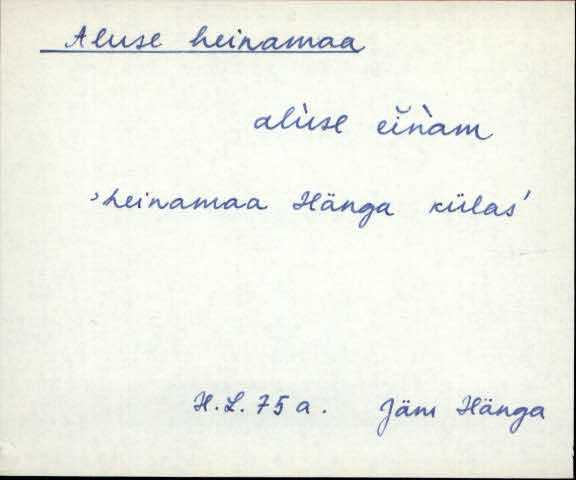 Aluse heinamaa
alùse eĭǹam
'heinamaa Hänga külas'
H.L. 75 a. Jäm Hänga